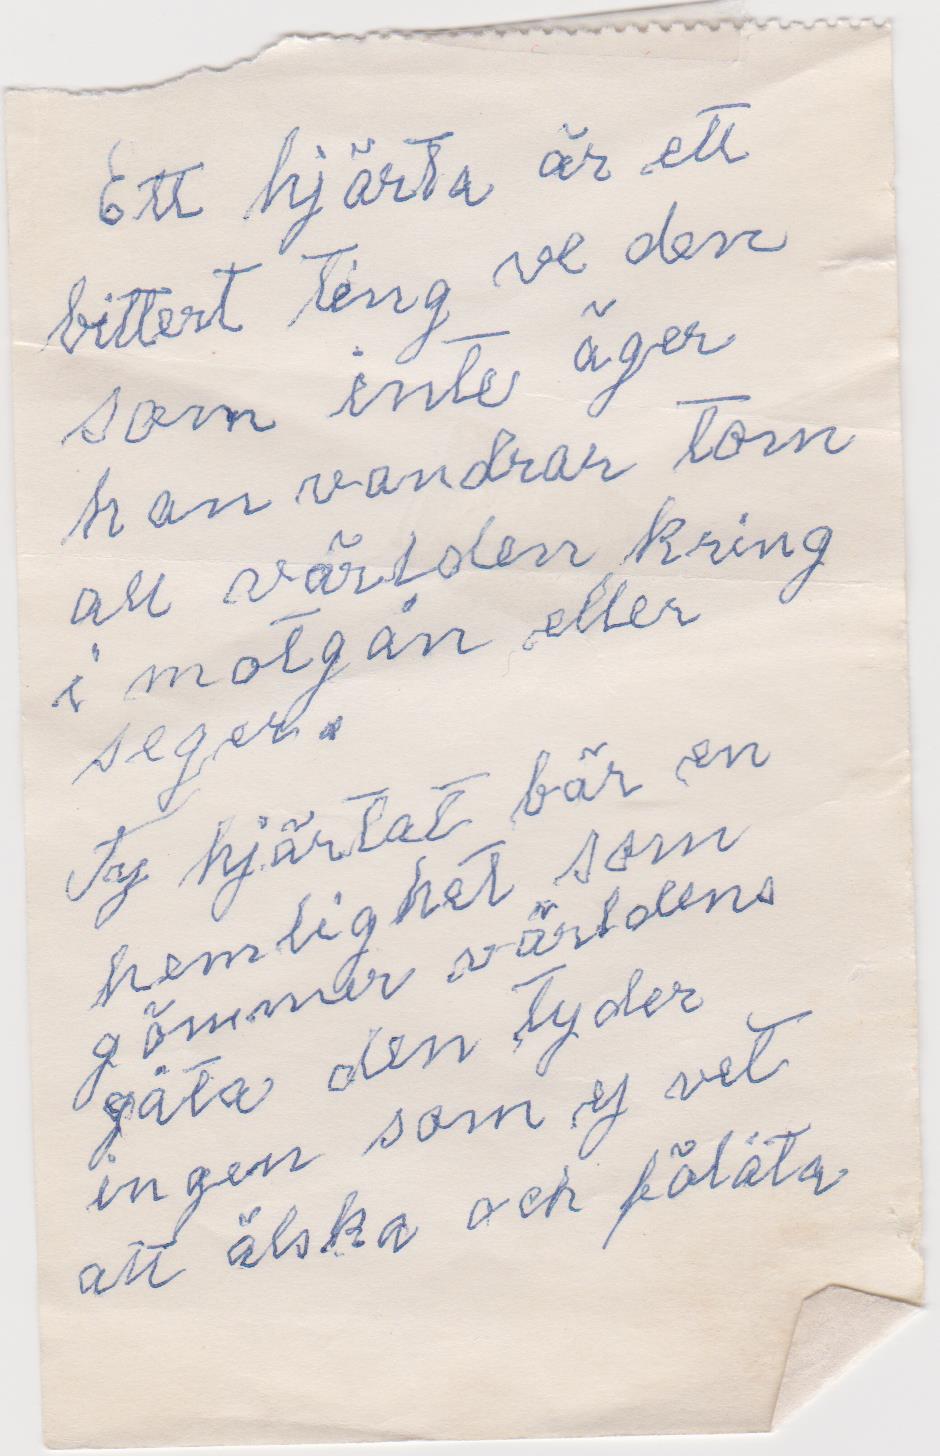 Ett hjärta är ett
bittert ting ve den
som inte äger
han vandrar tom
all världen kring
i motgån eller
seger.
Ty hjärtat bär en
hemlighet som
gömmer världens
gåta den tyder
ingen som ej vet
att älska och föláta